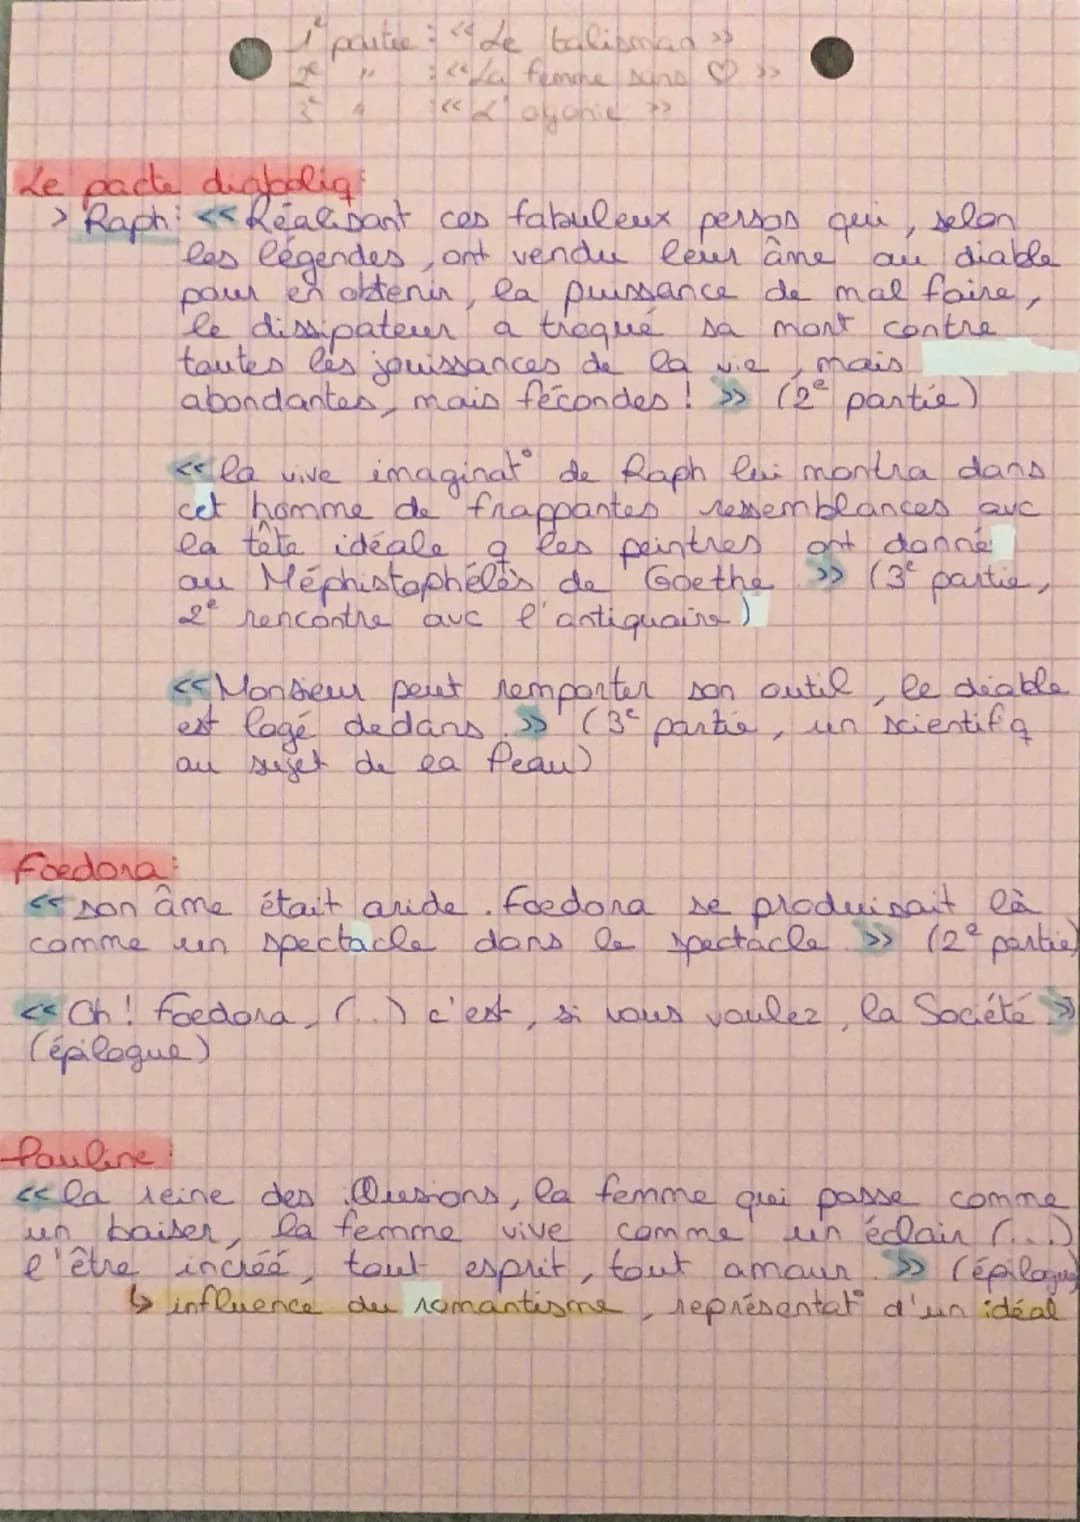 1e partie : << Le talisman >>
2e " : << La femme sans ♡ >>
3e " : << L'agonie >>
Le pacte diaboliq :
> Raph : << Réalisant ces fabuleux persos qui, selon
les légendes, ont vendu leur âme au diable
pour en obtenir, la puissance de mal faire,
le dissipateur a troqué sa mort contre
toutes les jouissances de la vie, mais
abondantes, mais fécondes ! >> (2e partie)
<< la vive imaginat° de Raph lui montra dans
cet homme de frappantes ressemblances avc
la tête idéale q les peintres ont donné
au Méphistophélès de Goethe >> (3e partie,
2e rencontre avc l'antiquaire)
<< Monsieur peut remporter son outil, le diable
est logé dedans. >> (3e partie, un scientifiq
au sujet de la Peau)
Foedora :
<< son âme était aride. Foedora se produisait là
comme un spectacle dans le spectacle >> (2e partie)
<< Oh ! Foedora, (...) c'est, si vous voulez, la Société >>
(épilogue)
Pauline :
<< la reine des illusions, la femme qui passe comme
un baiser, la femme vive comme un éclair (...)
l'être incréé, tout esprit, tout amour. >> (épilogue)
↳ influence du romantisme, représentat° d'un idéal